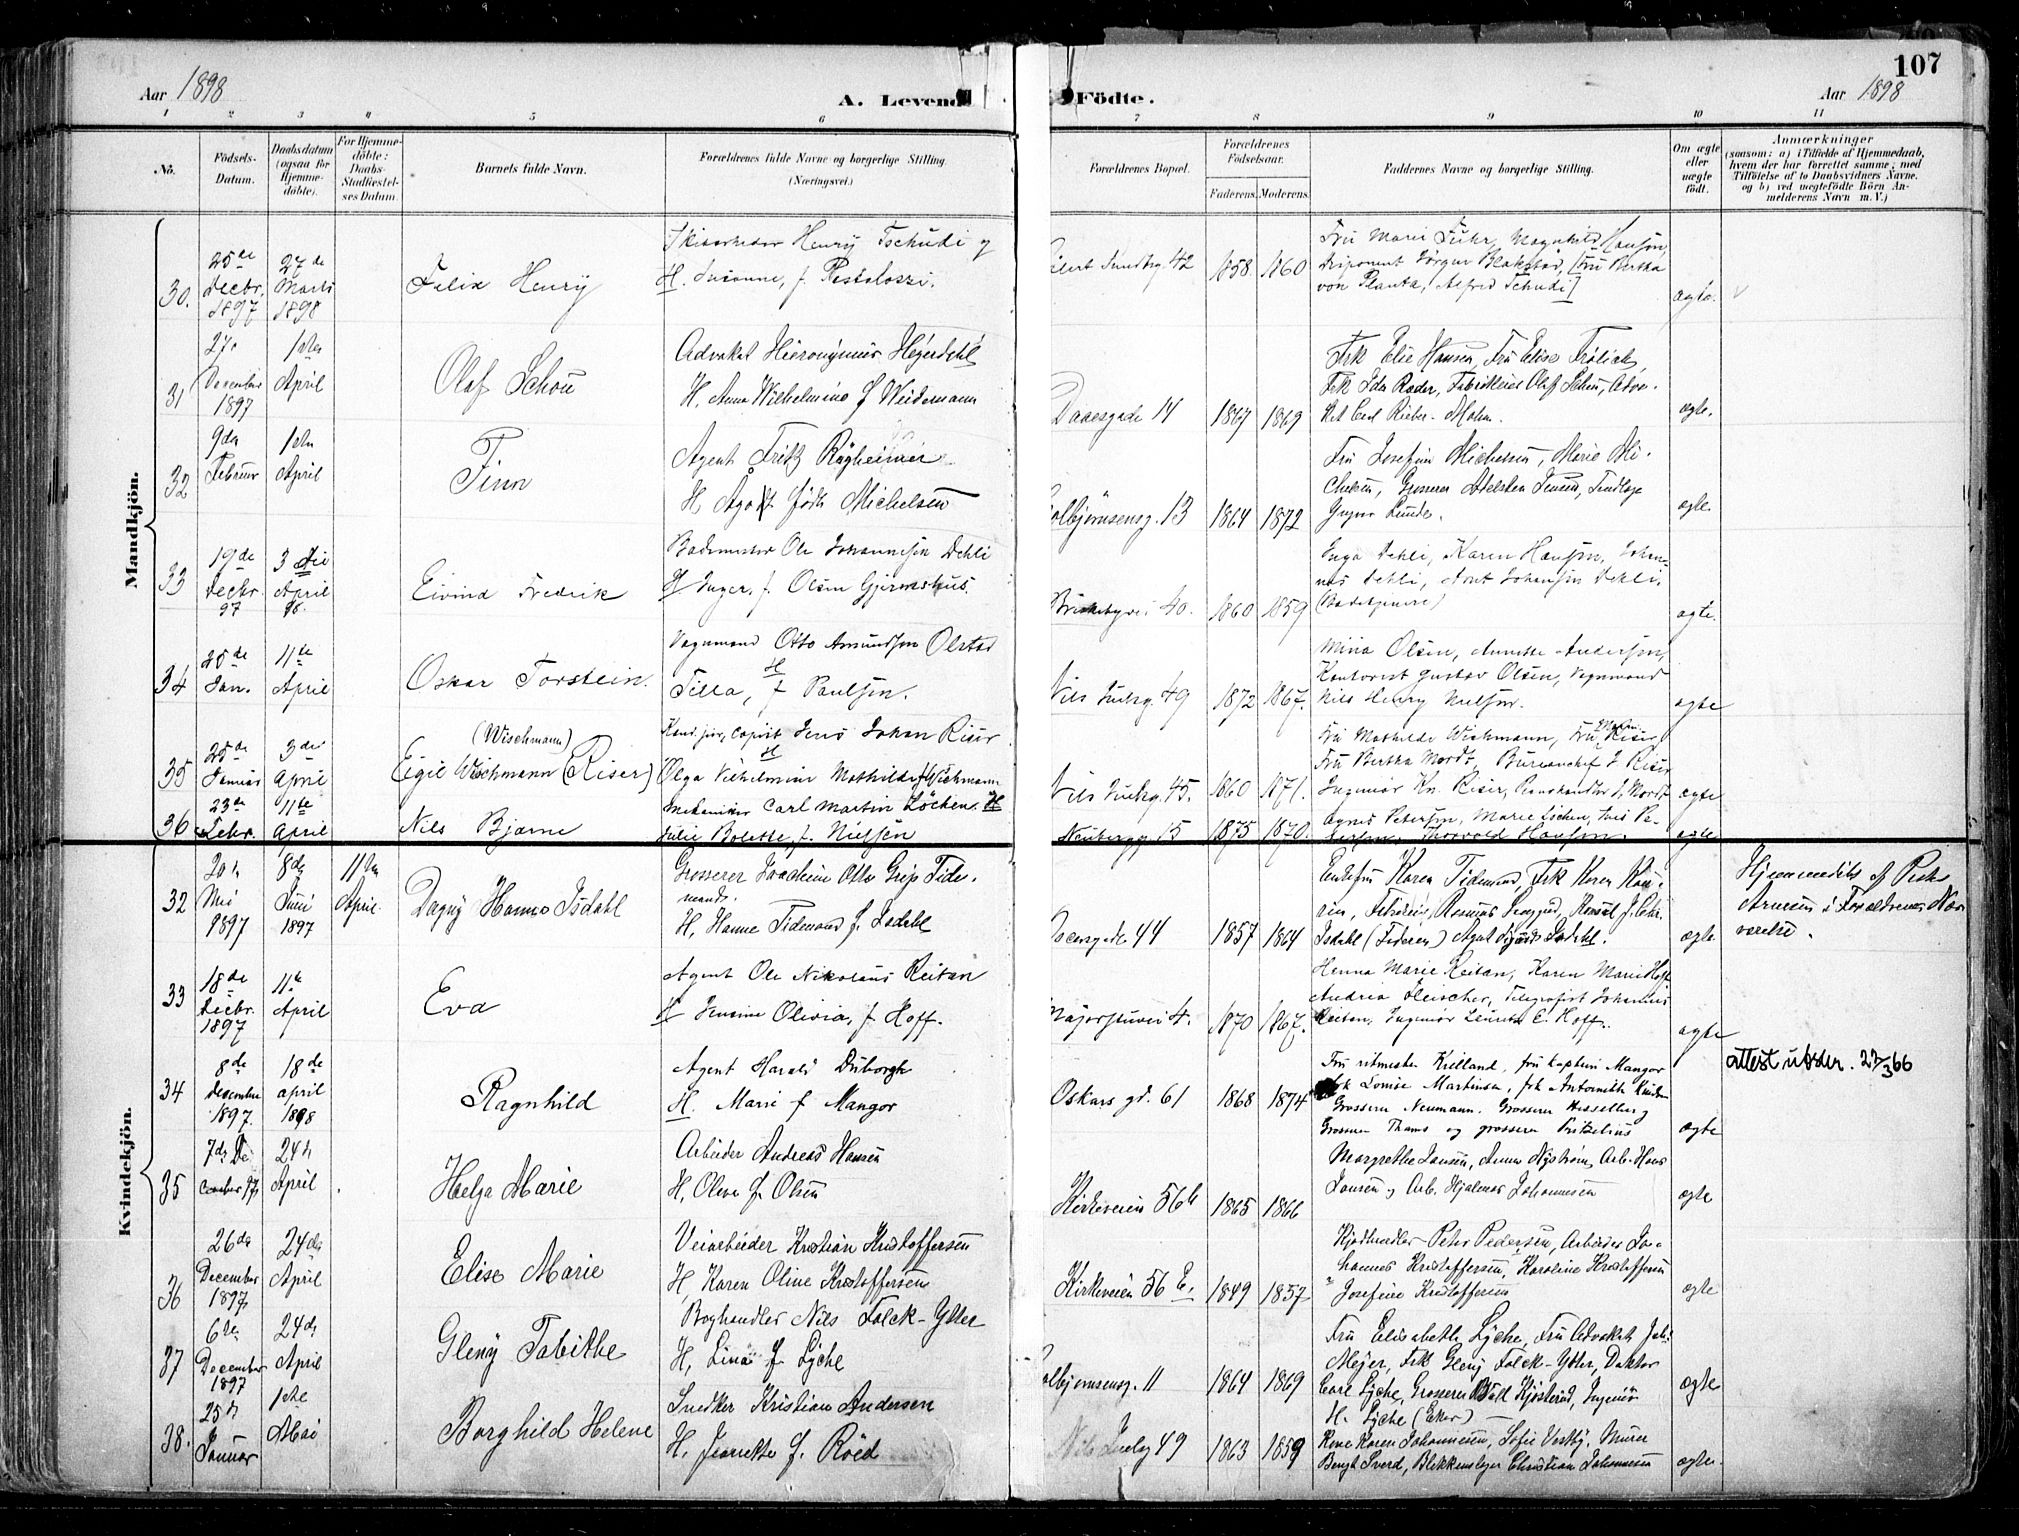 107
Aar 1898
A. Levende Födte.
Aar 1898
1 2 3 4 5 6 7 8 9 10 11
No.
Födsels-Datum.
Daabsdatum (ogsaa for Hjemme-döbte).
For Hjemme-döbte: Daabs-Stadfæstel-ses Datum.
Barnets fulde Navn.
Forældrenes fulde Navne og borgerlige Stilling.
(Næringsvei.)
Forældrenes Bopæl.
Forældrenes Födselsaar.
Faderens. Moderens.
Faddernes Navne og borgerlige Stilling.
Om ægte eller uægte født.
Anmærkninger
(saasom: a) i Tilfælde af Hjemmedaab, hvem der har forrettet samme, med Tilföielse af to Daabsvidners Navne, og b) ved uægtefödte Börn An-melderens Navn m. V.)
Mandkjön.
30. 25de Decbr. 1897 27de Marts 1898
Felix Henry
Henry Tschudi og
H. Susanne, f. Pestalozzi.
Eilert Sundtsg. 42 1858 1860
Fru Marie Fuhr, Magnhild Hansen,
Disponent Jörgen Blakstad, [Fru Bertha
von Planta, Alfred Tschudi]
ægte.
31 27. December 1897 1ste April
Olaf Schou
Advokat Hieronymus Heyerdahl
H. Anna Wilhelmine f Weidemann
Daaesgade 14 1867 1869
Frk Elie Hansen, Fru Elise Frölich
Frk Ida Ræder, Fabrikeier Olaf Schou, Advo-
kat Carl Rieber-Mohn.
ægte.
32 9da Februar 1ste April
Finn
Agent Fritz
H Ågot födt Michelsen
Colbjörnsensg. 13 1864 1872
Fru Josefine Michelsen, Marie Mi-
chelsen, Grosserer Adelsten Jensen, Tandlæge
Lunde.
ægte.
33 19de Decbr. 97 3die April 98.
Eivind Fredrik
Bademester Ole Johannesen Dehli
H Inger, f. Olsen Gjermshus.
Briskebyvei 40. 1860 1859
Inga Dehli, Karen Hansen, Johan-
nes Dehli, Arnt Johansen Dehli.
(Badetjenere)
ægte.
34 25de Jan. 11te April
Oskar Torstein.
Vognmand Otto Amundsen Olstad
H Tilla, f Paulsen.
Nils Juelsg. 49 1872 1867.
Mina Olsen, Annette Andersen,
Kontorist Gustav Olsen, Vognmand
Nils Henry Nielsen.
ægte
35 25de Januar 3die April
(Wischmann)
Eigil Wischmann (Riser)
Kand. jur., copist Jens Johan Riser
H
Olga Vilhelmine Mathilde f Wichmann
Nils Juelsg. 45. 1860 1871.
Fru Mathilde Wichmann, Fru Riser
Fru Bertha Mordt, Bureauchef J Riser
Ingeniør Kn. Riser, Mordt
ægte
36 23de Febr. 11te April
Nils Bjarne
Mekaniker Carl Martin Löcken. H
Julie Bolette, f. Nielsen
Neubergg 15 1875 1870.
Agnes Petersen, Marie Löchen,
Thorvald Hansen.
ægte
Kvindekjön.
32 20de Mai 1897 8de Juni 1897 11te April
Dagny Hanna Isdahl
Grosserer Joachim Otto Grip Tide-
mand.
H, Hanne Tidemand f. Isdahl
44 1857 1864
Enkefru Karen Tidemand, Frk Karen
Konsul J. Chr.
Isdahl (Fadderen) Agent Isdahl.
ægte
Hjemmedöbt af Peter
Arnesen i Forældrenes Nær-
værelse.
33 18de Decbr. 1897 11te April
Eva
Agent Ole Nikolaus Reitan
H Jensine Olivia, f. Hoff.
Majorstuvei 4. 1870 1867.
Hanna Marie Reitan, Karen Marie Hoff
Andrea Fleischer, Telegrafist Johannes
Reitan, Ingeniør Laurits C. Hoff.
ægte
34 8de december 1897 18de april 1898
Ragnhild
Agent Harald Duborgh
H. Marie f Mangor
Oskars gd. 61 1868 1874
Fru ritmester Kielland, fru kaptein Mangor
frk Louise Martinsen, frk Antonette
Grosserer Neumann. Grosserer Hesselberg
Grosserer Thams og grosserer Pritzelius
ægte
attest utsted. 27/3 66
35 7de December 97 24de April
Helga Marie
Arbeider Andreas Hansen
H, Oleva f. Olsen
Kirkeveien 56b 1865 1866
Margrethe Jansen, Anna Nyström, Arb. Hans
Jansen og Arb. Hjalmar Johannesen
ægte
36 26de December 1897 24de April
Elise Marie
Veiarbeider Kristian Kristoffersen
H, Karen Oline Kristoffersen
Kirkeveien 56 E, 1849 1857
Kjödhandler Peter Pedersen, Arbeider Jo-
hannes Kristoffersen, Karoline Kristoffersen
" Josefine Kristoffersen
ægte
37 6te December 1897 24de April
Gleny Tabithe
Boghandler Nils Falck-Ytter
H, Lina f Lyche
Colbjørnsensg. 11 1864 1869
Fru Elisabeth Lyche, Fru Advokat Joh:
Meyer, Frk Gleny Falck-Ytter, Doktor
Carl Lyche, Grosserer Kjösterud, Ingeniör
H. Lyche (Eker) —
ægte
38. 25de Januar 1ste Mai
Borghild Helene
Snedker Kristian Andersen
H. Jeanette f. Röed
Nils Juelsg 49 1863 1859
Karen Johannesen, Sofie Vestby, Murer
Bengt Sverd, Blikkenslager Christian Johannesen
ægte.